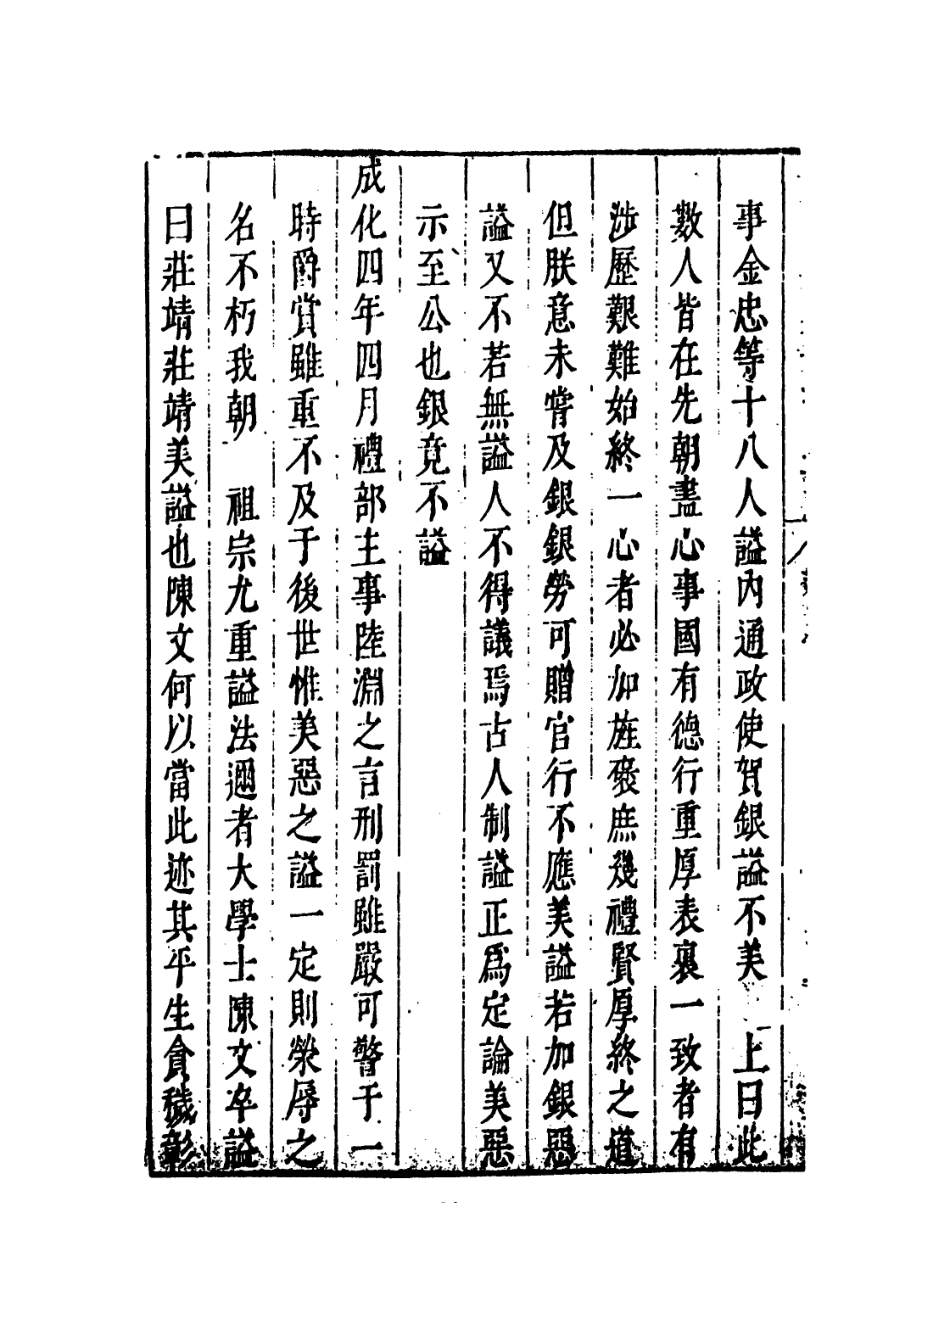 事金忠等十八人謚內通政使賀銀謚不美　上曰此
數人皆在先朝盡心事國有德行重厚表裏一致者有
涉歷艱難始終一心者必加旌襃庶幾禮賢厚終之道
但朕意未嘗及銀銀勞可贈官行不應美謚若加銀惡
謚又不若無謚人不得議焉古人制謚正爲定論美惡
示至公也銀竟不謚
成化四年四月禮部主事陸淵之言刑罰雖嚴可警于一
時爵賞雖重不及于後世惟美惡之謚一定則榮辱之
名不朽我朝　祖宗尤重謚法邇者大學士陳文卒謚
曰莊靖莊靖美謚也陳文何以當此迹其平生貪穢彰